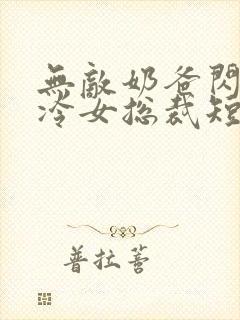 無敵奶爸閃
冷女総裁短
普拉薈